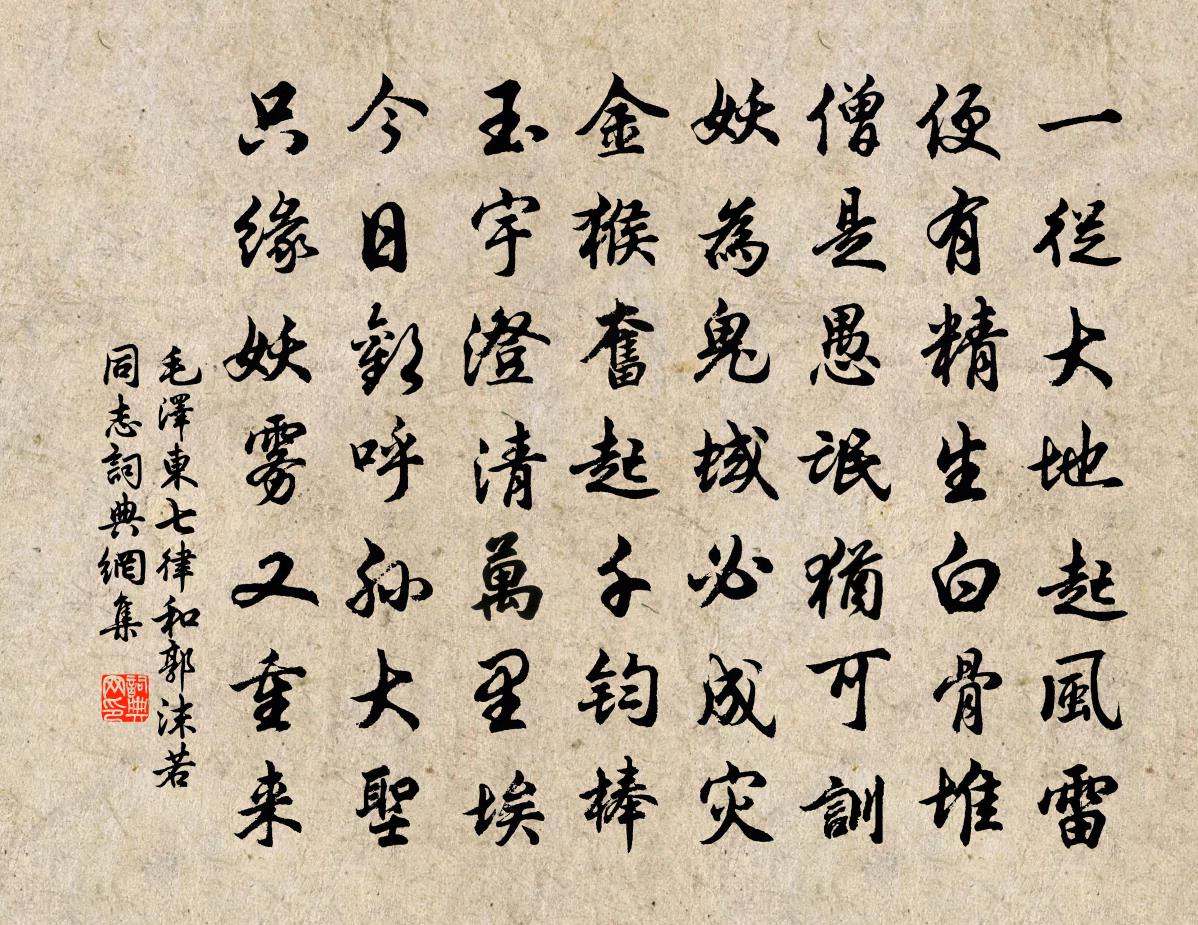 一從大地起風雷
便有精生白骨堆
僧是愚氓猶可訓
妖為鬼域必成灾
金猴奮起千鈞棒
玉宇澄清萬里埃
今日歡呼孫大聖
只緣妖雾又重来
毛澤東七律和郭沫若
同志詞典網集
詞典
网印